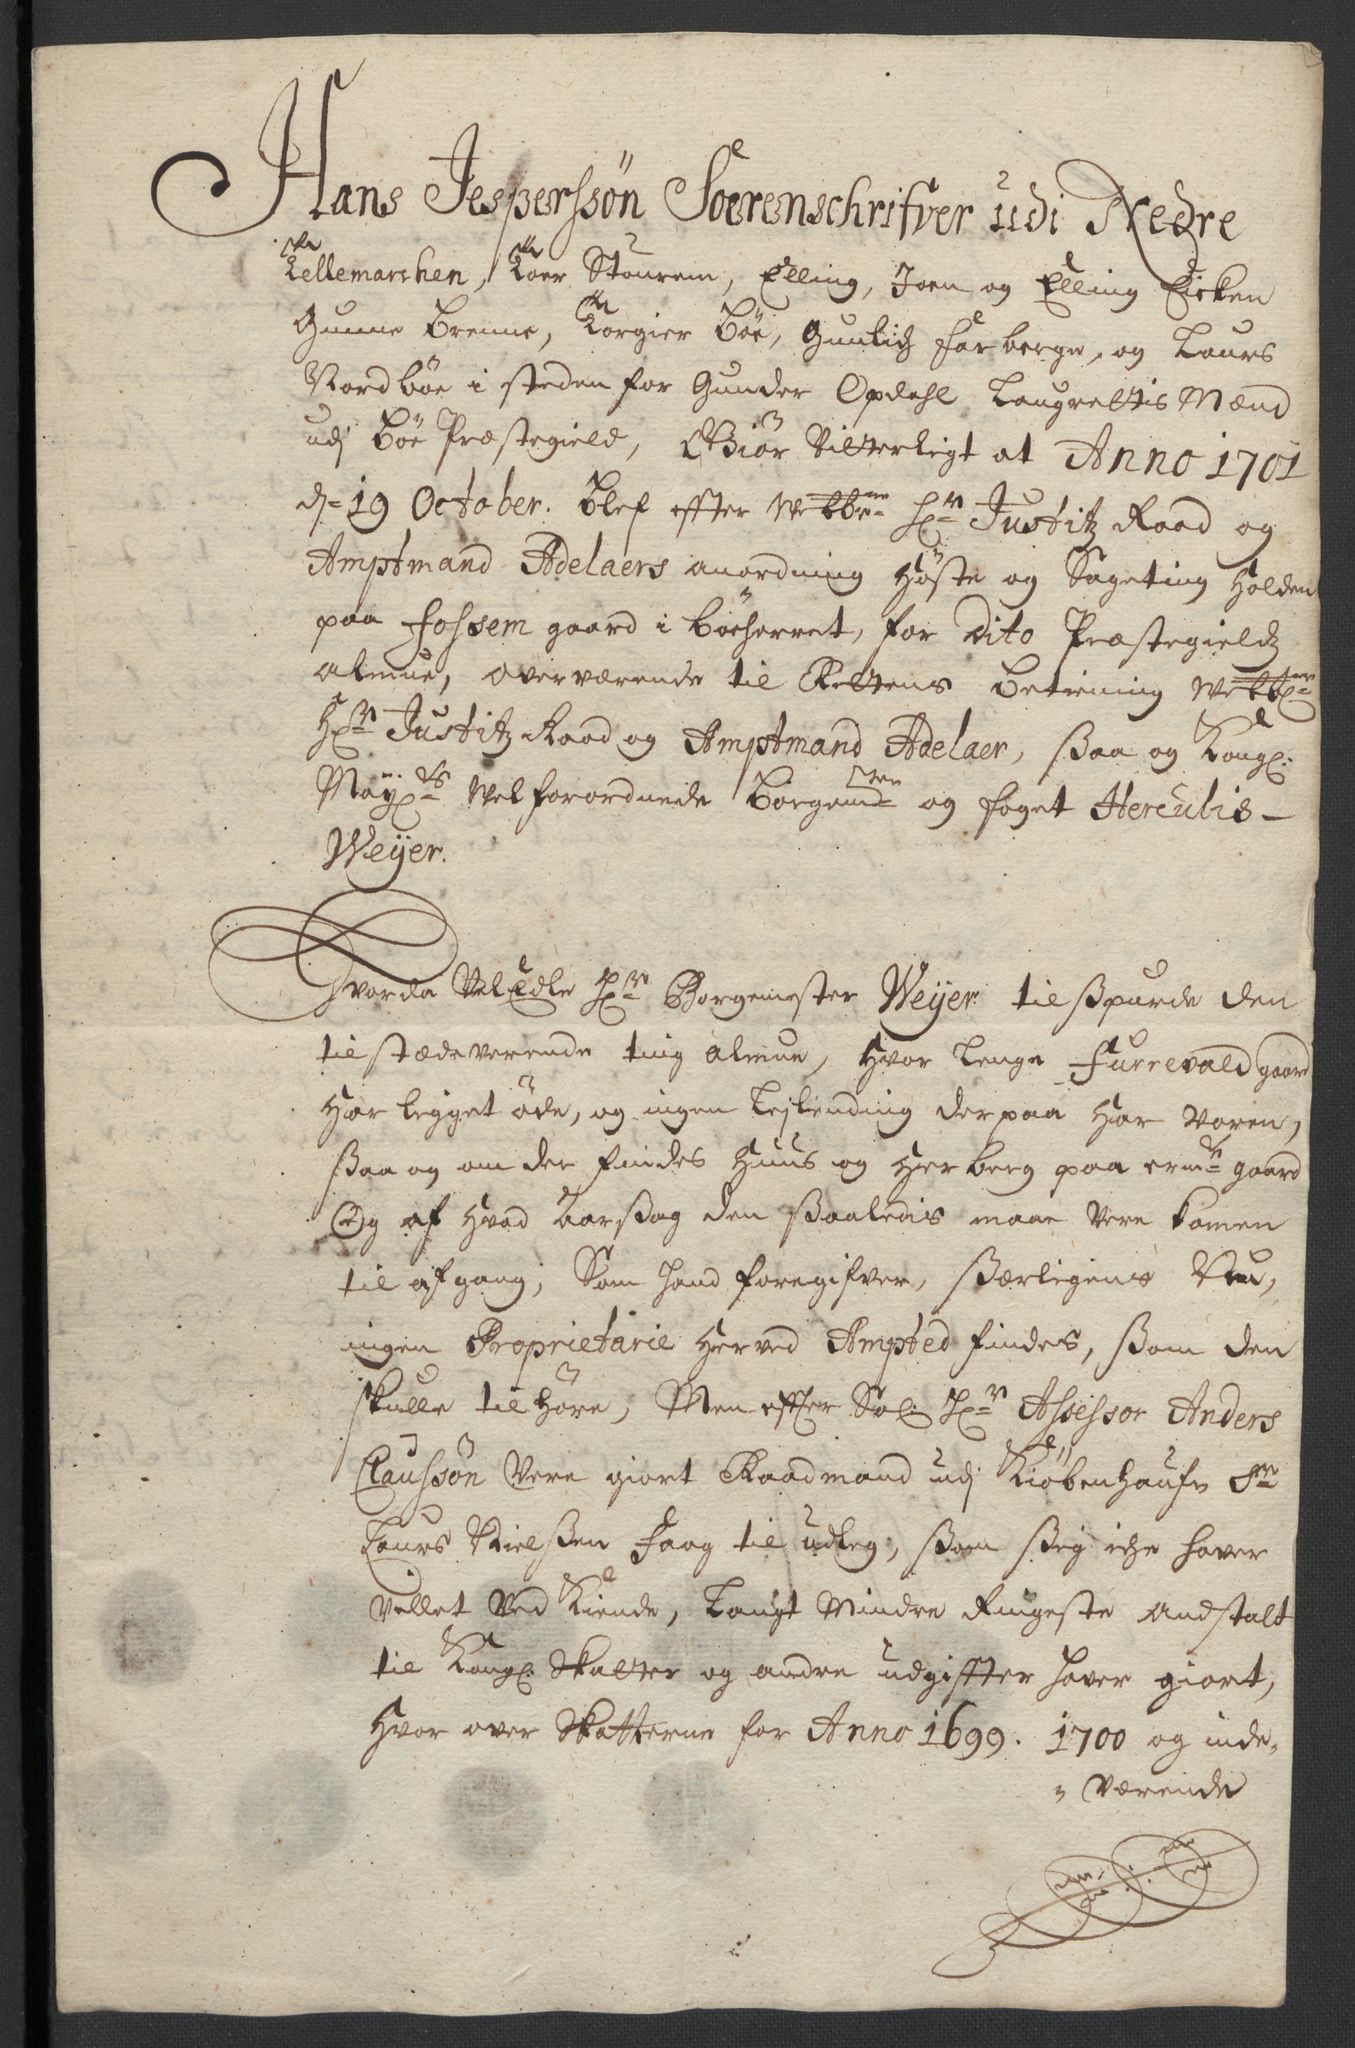 Hans Jesperssøn Soerenschrifver udi Nedre
Tellemarchen, Toer Stourem, Elling, Joen og Elling Eicken
Gunne Brenne, Torgier Böe, Gunlich Farberge, og Laurs
Nordböe i steden for Gunder Opdahl Laugrettis Mænd
udj Böe Præstegield, Giör Vitterligt at Anno 1701
d= 19 October. Blef effter Velbr: Hr: Justitz Raad og
Amptmand Adelaers anordning Höste og Sageting Holden
paa Fossem gaard i Böeherret, for dito Præstegieldz
almue, overværende til Rettens betiening Velbr:
Hr: Justitz Raad og Amptmand Adelaer, ßaa og Kongl:
Mayts: Vel forordnede Borgemster og foget Herculis
Weyer.
Hvorda Vel Edle Hr: Borgemester Weyer tilßpurde den
tilstædeverende ting almue, Hvor lenge Furrevald gaard
Har legget öde, og ingen Leylending der paa Har Voren,
ßaa og om der findes Huus og Herberg paa ermte gaard
Og af Hvad Aarßag den ßaaledis maae Vere komen
til afgang, Som Hand foregifver, ßærligens Nu,
ingen Proprietarie Her ved Ampted findes, ßom den
skulle tilhöre, Men effter Sal: Hr: Assessor Anders
Claussøn Vere giort Raadmand udj Kiöbenhaufn Sr:
Laurs Nielßen Faag til udleg, ßom ßig iche haver
Villet Ved Kiende, Langt Mindre Ringeste Andstalt
til Kongl: Skatter og andre udgiffter haver giort,
Hvor over Skatterne for Anno 1699. 1700 og inde-
værende